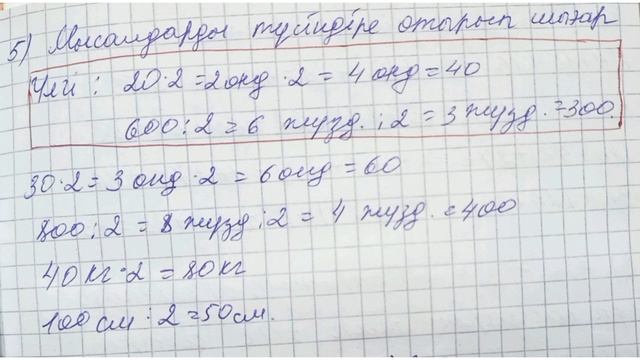 5) Мысалдарды түсіндіре отырып шығар
Үлгі : 20·2 =2онд ·2 = 4 онд =40
600:2 = 6 жүзд. :2 = 3 жүзд. =300.
30·2= 3 онд ·2 = 6 онд =60
800:2 = 8 жүзд :2 = 4 жүзд. =400
40кг·2 =80кг
100см :2=50см.